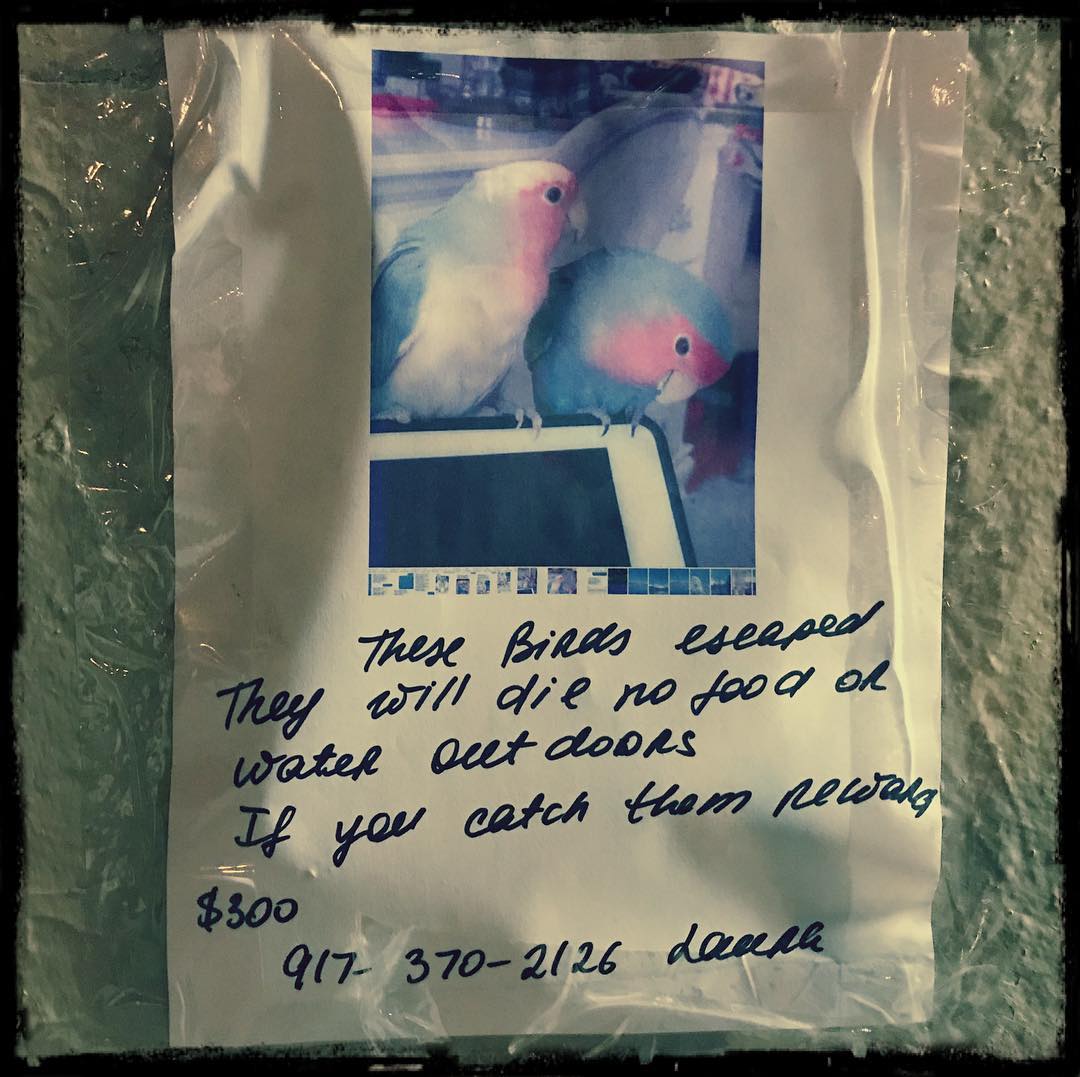 These Birds escaped
They will die no food or
water outdoors
If you catch them reward
$300
917-370-2126 Laura